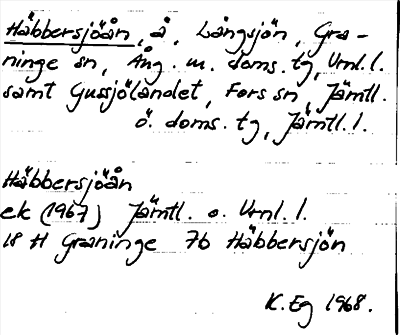 Häbbersjöån, å, Långsjön, Gra-
ninge sn, Ång. m. doms. tg, Vrnl. l.
samt Gussjölandet, Fors sn, Jämtl.
ö. doms. tg, Jämtl. l.
Häbbersjöån
ek (1967) Jämtl. o. Vrnl. l.
18 H Graninge 7b Häbbersjön
K. Eg 1968.